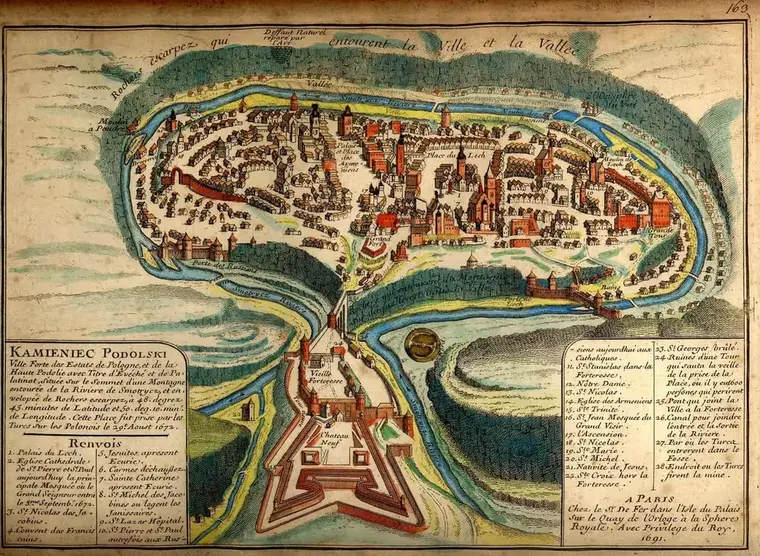 163
Rochers escarpez qui entourent la Ville et la Vallée
Deffaut Naturel
reparé par
l'Art
Vallée
Moulin
a Poudre
Palais
et Place
des
Arme
niens
Place du Lech
Moulin du
Lech
Grande
Tour
Grand
Porte des Russiens
Smotrycz Riviere
Bains
Porte du
Lech
Vieille
Forteresse
Chateau
Neuf
KAMIENIEC PODOLSKI
Ville Forte des Estats de Pologne, et de la
Haute Podolie avec Titre d'Evêché et de Pa-
latinat, Située sur le Sommet d'une Montagne
entourée de la Riviere de Smotrycz, et en-
velopée de Rochers escarpez, a 48. degrez
45. minutes de Latitude et 50. deg. 10. min.
de Longitude. Cette Place fut prise par les
Turcs sur les Polonois le 29. Aoust 1672.
Renvois
1. Palais du Lech.
2. Eglise Cathedrale
de St. Pierre et St. Paul
aujourd'huy la prin-
cipale Mosquée ou le
Grand Seigneur entra
le 3me. Septemb. 1672.
3. St. Nicolas des Ja-
cobins.
4. Couvent des Francis
cains.
5. Jesuites, apresent
Ecurie.
6. Carmes déchaussez.
7. Sainte Catherine
apresent Ecurie.
8. St. Michel des Jaco-
bins ou logent les
Janissaires.
9. St. Lazar Hôpital.
10. St. Pierre et St. Paul
autrefois aux Rus-
siens aujourd'huy aux
Catholiques.
11. St. Stanislas dans la
Forteresse.
12. Nôtre Dame.
13. St. Nicolas.
14. Eglise des Armeniens
15. Ste. Trinité.
16. St. Jean Mosquée du
Grand Visir.
17. l'Ascension.
18. St. Nicolas.
19. Ste. Marie.
20. St. Michel.
21. Nativité de Jesus.
22. Ste. Croix hors la
Forteresse.
23. St. Georges brûlé.
24. Ruines d'une Tour
qui sauta la veille
de la prise de la
Place, où il y eut 800
persones qui perirent
25. Pont qui joint la
Ville a la Forteresse
26. Canal pour joindre
l'entrée et la Sortie
de la Riviere.
27. Par ou les Turcs
entrerent dans le
Fosse.
28. Endroit ou les Turcs
firent la mine.
A PARIS
Chez le Sr. De Fer dans l'Isle du Palais
Sur le Quay de l'Orloge à la Sphere
Royale, Avec Privilege du Roy.
1691.